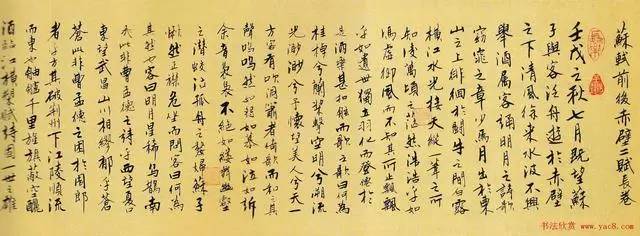 蘇賦前後赤壁二賦長卷
壬戌之秋七月既望蘇
子與客泛舟遊於赤壁
之下清風徐來水波不興
舉酒屬客誦明月之詩歌
窈窕之章少焉月出於東
山之上徘徊於鬥牛之間白露
橫江水光接天縱一葦之所
如凌萬頃之茫然浩浩乎如
馮虛御風而不知其所止飄飄
乎如遺世獨立羽化而登僊於
是酒樂甚扣舷而歌之歌曰
桂棹兮蘭槳擊空明兮溯流
光渺渺兮予懷望美人兮天一
方客有吹洞簫者倚歌而和之其
聲嗚嗚然如怨如慕如泣如訴
余音裊裊不絕如縷舞幽壑
之潛蛟泣孤舟之嫠婦蘇子
愀然正襟危坐而問客曰何為
其然也客曰明月星稀烏鵲南
飛此非曹孟德之詩乎西望夏口
東望武昌山川相繆鬱乎蒼
蒼此非曹孟德之困於周郎
者乎方其破荊州下江陵順流
而東也舳艫千里旌旗蔽空釃
酒臨江橫槊賦詩固一世之雄
书法欣赏
www.yac8.com